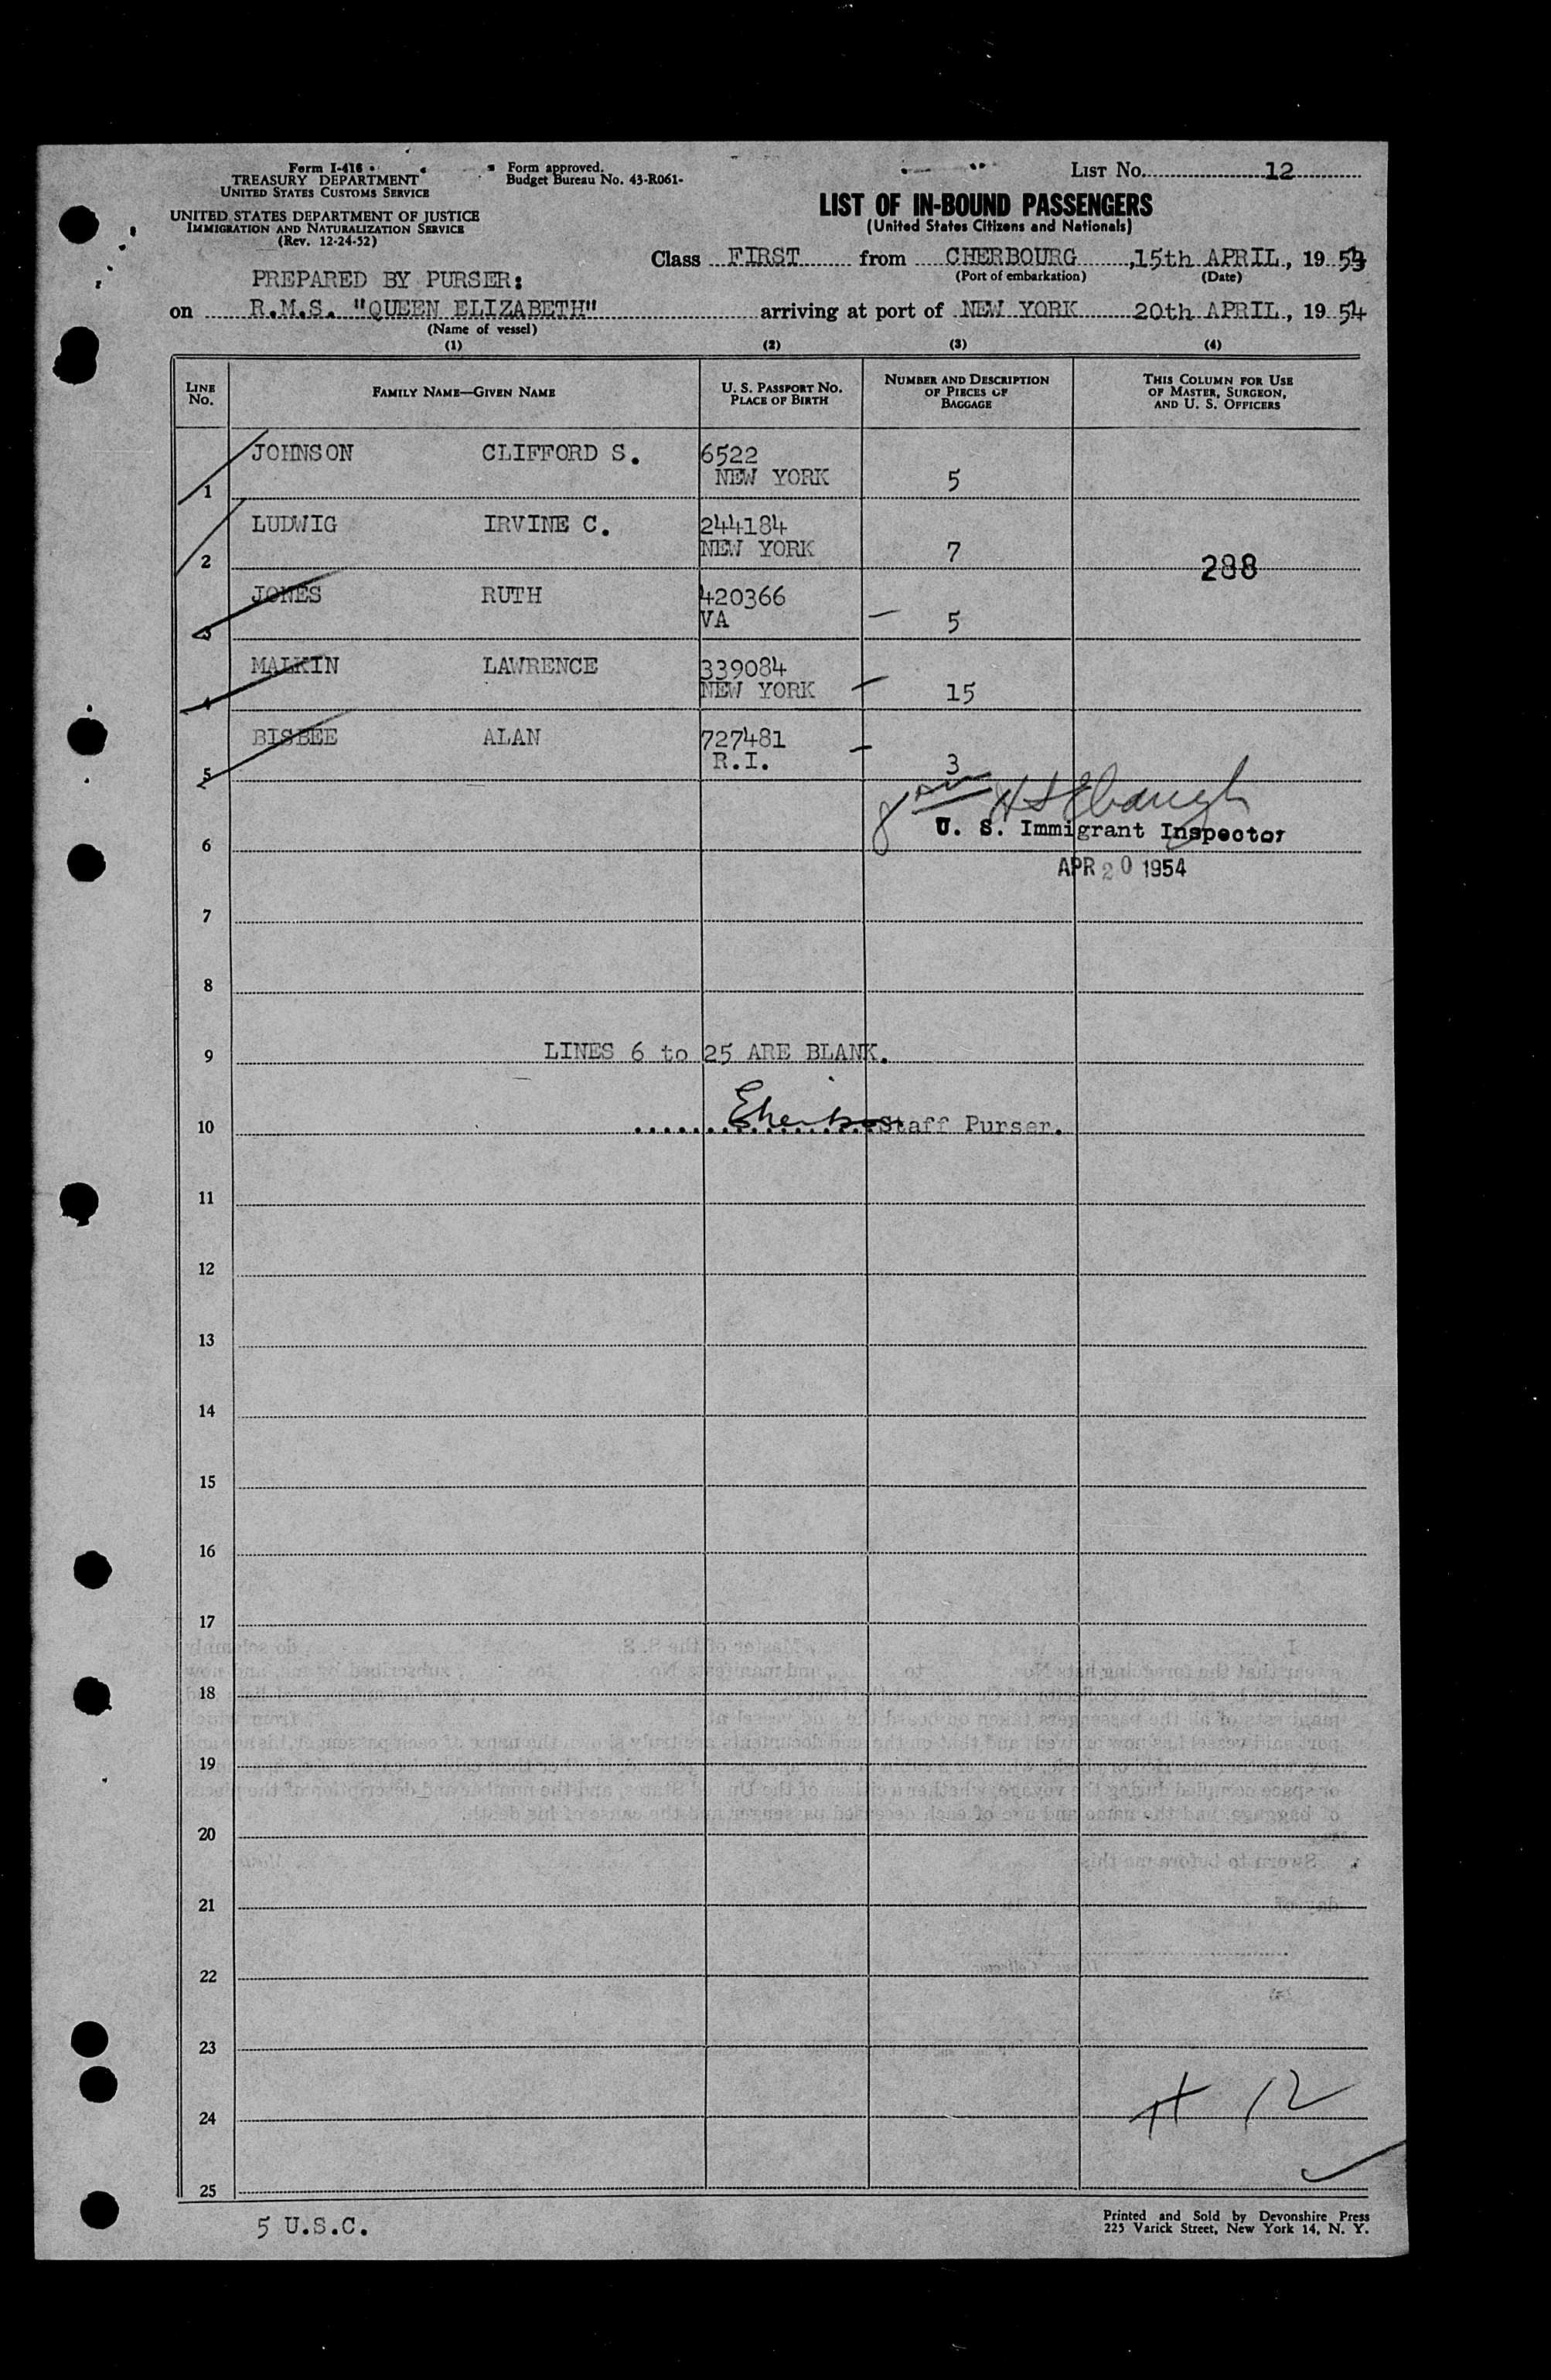 Form I-416
TREASURY DEPARTMENT
UNITED STATES CUSTOMS SERVICE
UNITED STATES DEPARTMENT OF JUSTICE
IMMIGRATION AND NATURALIZATION SERVICE
(Rev. 12-24-52)
Form approved.
Budget Bureau No. 43-R061-
LIST No. 12
LIST OF IN-BOUND PASSENGERS
(United States Citizens and Nationals)
Class FIRST from CHERBOURG, 15th APRIL, 1954
(Port of embarkation) (Date)
PREPARED BY PURSER:
on R.M.S. "QUEEN ELIZABETH" arriving at port of NEW YORK 20th APRIL, 1954
(Name of vessel)
(1) (2) (3) (4)
LINE No. FAMILY NAME—GIVEN NAME U. S. PASSPORT No. PLACE OF BIRTH NUMBER AND DESCRIPTION OF PIECES OF BAGGAGE THIS COLUMN FOR USE OF MASTER, SURGEON, AND U. S. OFFICERS
JOHNSON CLIFFORD S. 6522
1 NEW YORK 5
LUDWIG IRVINE C. 244184
2 NEW YORK 7 288
JONES RUTH 420366
3 VA 5
MALKIN LAWRENCE 339084
4 NEW YORK 15
BISBEE ALAN 727481
5 R.I. 3
U. S. Immigrant Inspector
6
APR 20 1954
7
8
9 LINES 6 to 25 ARE BLANK.
10 Staff Purser.
11
12
13
14
15
16
17
18
19
20
21
22
23
24 # 12
25
5 U.S.C.
Printed and Sold by Devonshire Press
225 Varick Street, New York 14, N. Y.